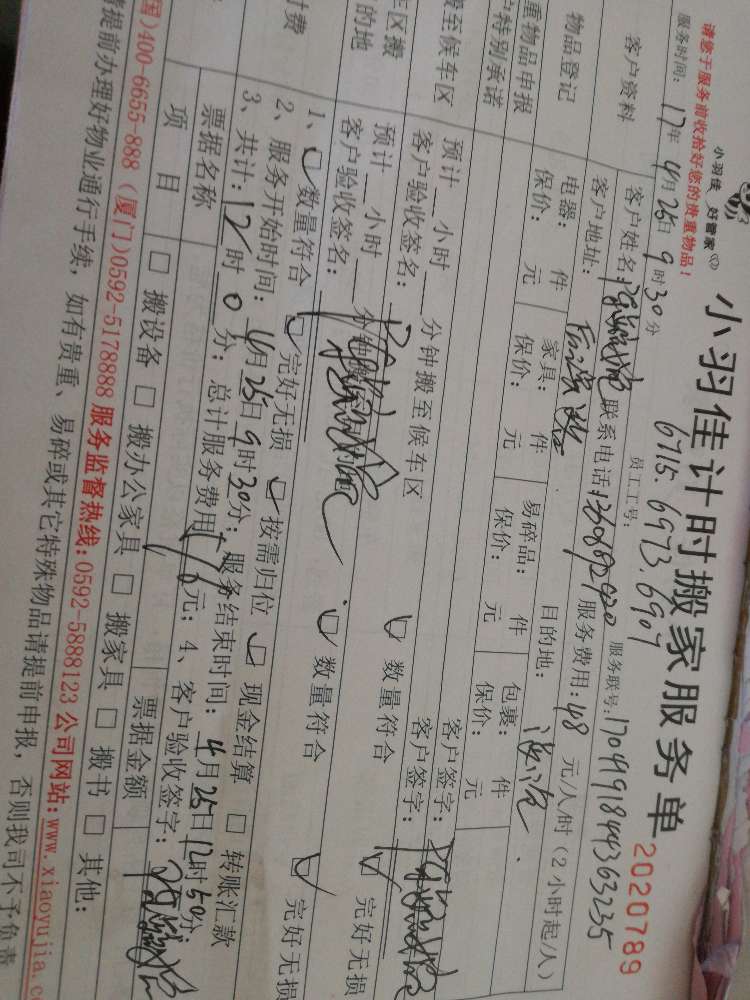 请您于服务前收拾好您的贵重物品！
小羽佳 好管家
小羽佳计时搬家服务单
2020789
服务时间：17年4月25日9时30分
员工工号：6715.6973.6907
服务联号：17041918444363235
客户资料
客户姓名：
联系电话：
服务费用：48 元/人/时（2小时起/人）
客户地址：
目的地：
物品登记
电器： 件 家具： 件 易碎品： 件 包裹： 件
保价： 元 保价： 元 保价： 元 保价： 元
重物品申报
户特别承诺
客户签字：
搬至候车区
预计 小时 分钟搬至候车区
客户签字：
客户验收签名：
数量符合 完好无损
车区搬
的地
预计 小时 分钟搬
客户验收签名：
数量符合 完好无损
付费
1、 数量符合 完好无损 按需归位 现金结算 □ 转账汇款
2、服务开始时间：4月25日9时30分；服务结束时间：4月25日12时50分
3、共计：12时0分；总计服务费用 元；4、客户验收签字：
票据名称
票据金额
项目
□ 搬设备 □ 搬办公家具 □ 搬家具 □ 搬书 □ 其他：
国)400-6655-888 (厦门)0592-5178888 服务监督热线：0592-5888123 公司网站：www.xiaoyujia.c
请提前办理好物业通行手续，如有贵重、易碎或其它特殊物品请提前申报，否则我司不予负责